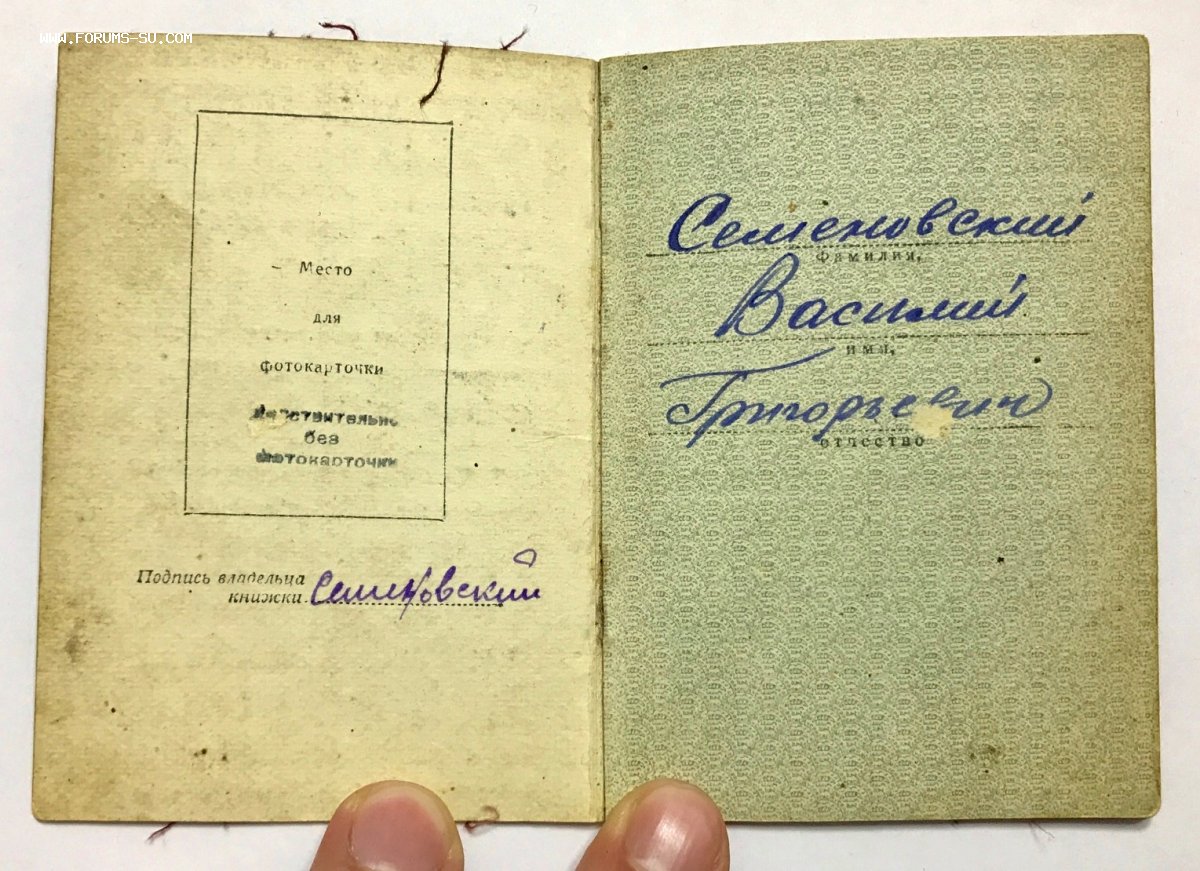 WWW.FORUMS-SU.COM
Место
для
фотокарточки
Действительно
без
фотокарточки
Подпись владельца
книжки. Семеновский
Семеновский
фамилия,
Василий
имя,
Григорьевич
отчество